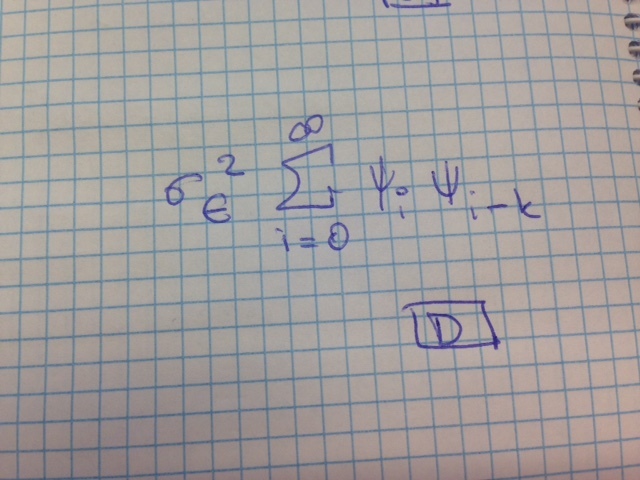 σ_ϵ^2 ∑_{i=0}^{∞} ψ_i ψ_{i-k}
D